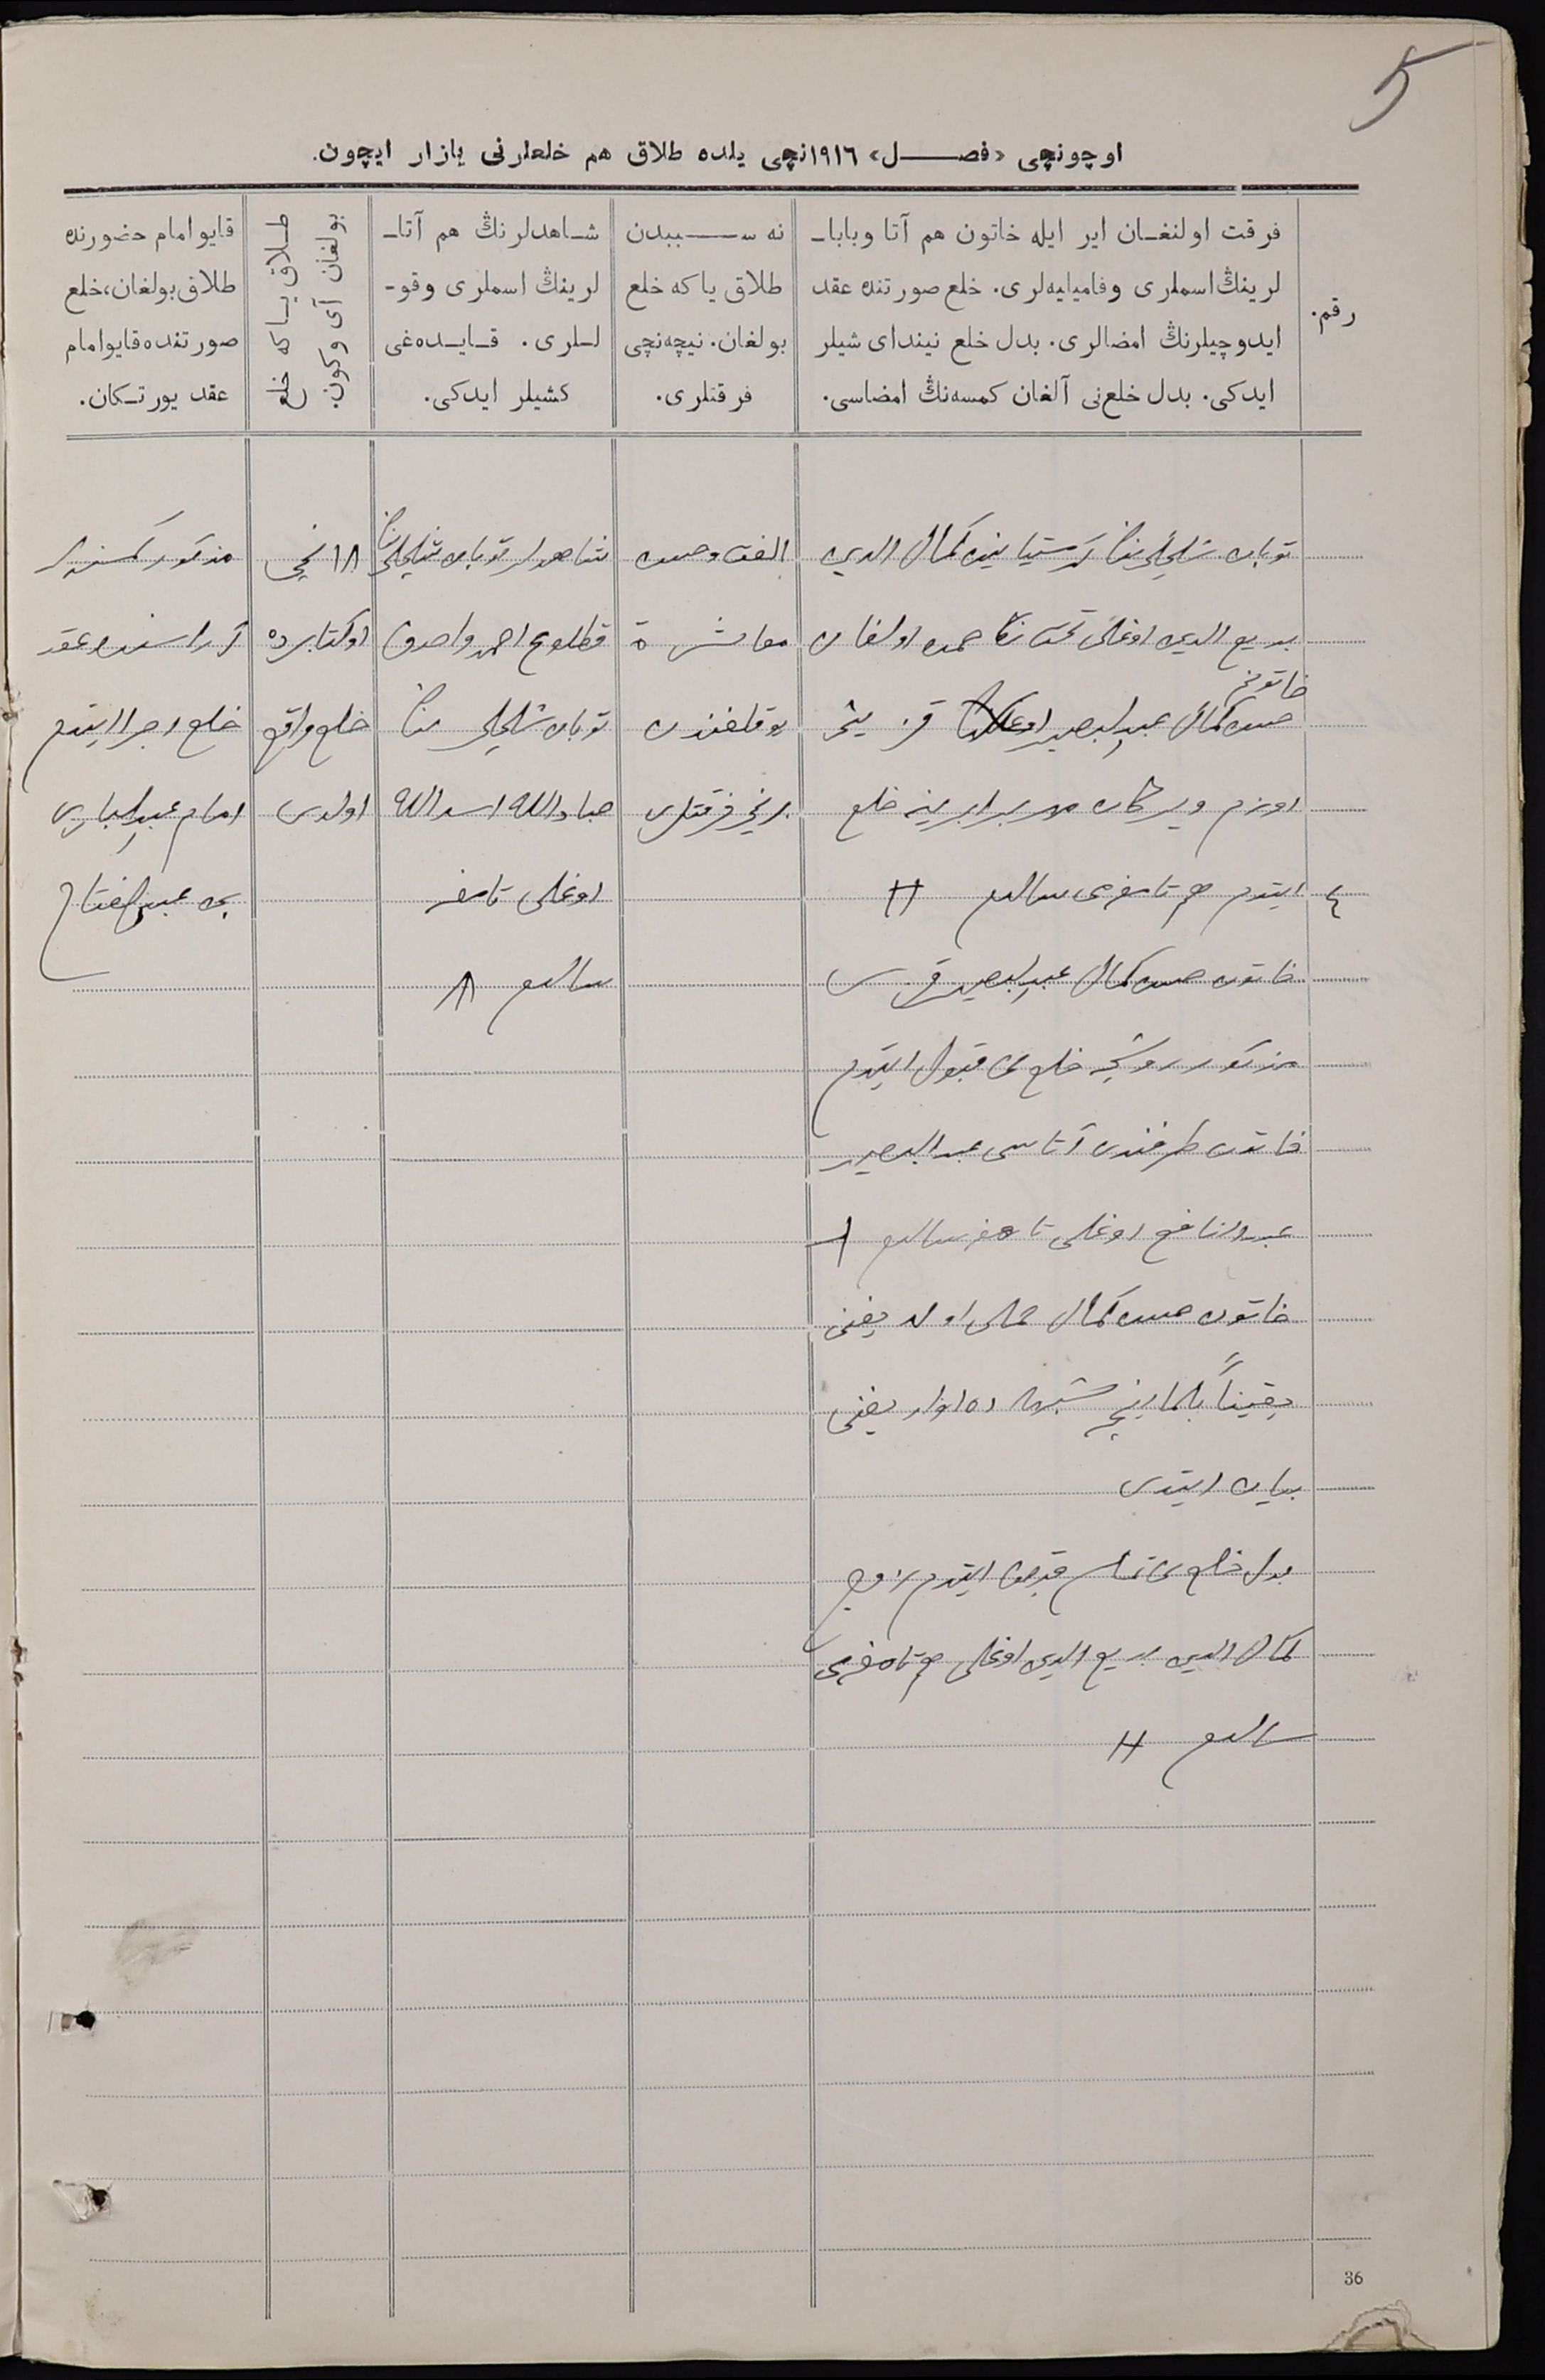 5
اوچونچی «فصل» ١٩١٦نچی یلده طلاق هم خلعلرنی یازار ایچون.
رقم.
فرقت اولنغان ایر ایله خاتون هم آتا وبابا-
لرینڭ اسملری وفامیلیه‌لری. خلع صورتنده عقد
ایدوچیلرنڭ امضالری. بدل خلع نیندای شیلر
ایدکی. بدل خلع‌نی آلغان کمسه‌نڭ امضاسی.
نه سببدن
طلاق یا که خلع
بولغان. نیچه‌نچی
فرقتلری.
شاهدلرنڭ هم آتا-
لرینڭ اسملری وقو-
للری. قایده‌غی
کشیلر ایدکی.
طلاق یا که خلع
بولغان آی وکون.
قایو امام حضورنده
طلاق بولغان، خلع
صورتنده قایو امام
عقد یورتکان.
توبان کرستیانین کمال الدین
بدیع الدین اوغلی اولغان
خاتونم
کمال عبدالبصیر
اوزم ویرکان مهر برابرینه خلع
٤
ایتدم هم تامغام سالدم H
خاتون کمال عبدالبصیر قزی
مذکور روشچه خلع نی قبول ایتدم
خاتون طرفندن آتاسی عبدالبصیر
عبدالنافع اوغلی تامغه سالدم
خاتون کمال حملی اولدیغنی
یقیناً بلماینچه شبهه ده اولدیغنی
بیان ایتدی
بدل خلع نی تمام قبض ایتدم زوج
کمال الدین بدیع الدین اوغلی هم تامغام
سالدم H
الفت وحسن
معاشرة
یوقلقندن
برنچی فرقتلری
شاهدلر توبان
قطلوع احمد
توبان
عبادالله اسدالله
اوغلی تامغه
سالدم ٨
١٨ نچی
اوکتابرده
خلع واقع
اولدی
مذکور کمسنه‌لر
آراسنده عقد
خلع اجرا ایتدم
امام عبدالباری
بن عبدالفتاح
36